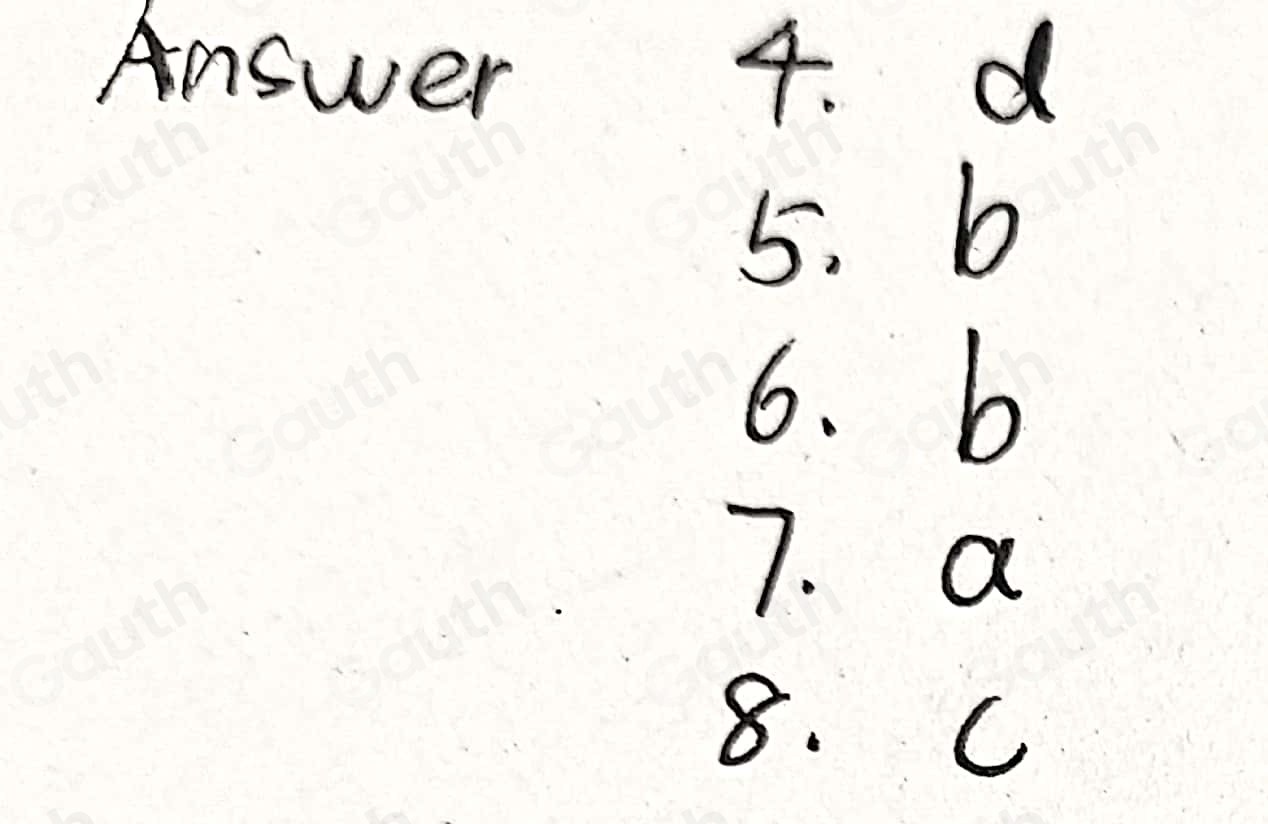 Answer 4. d
5. b
6. b
7. a
8. c